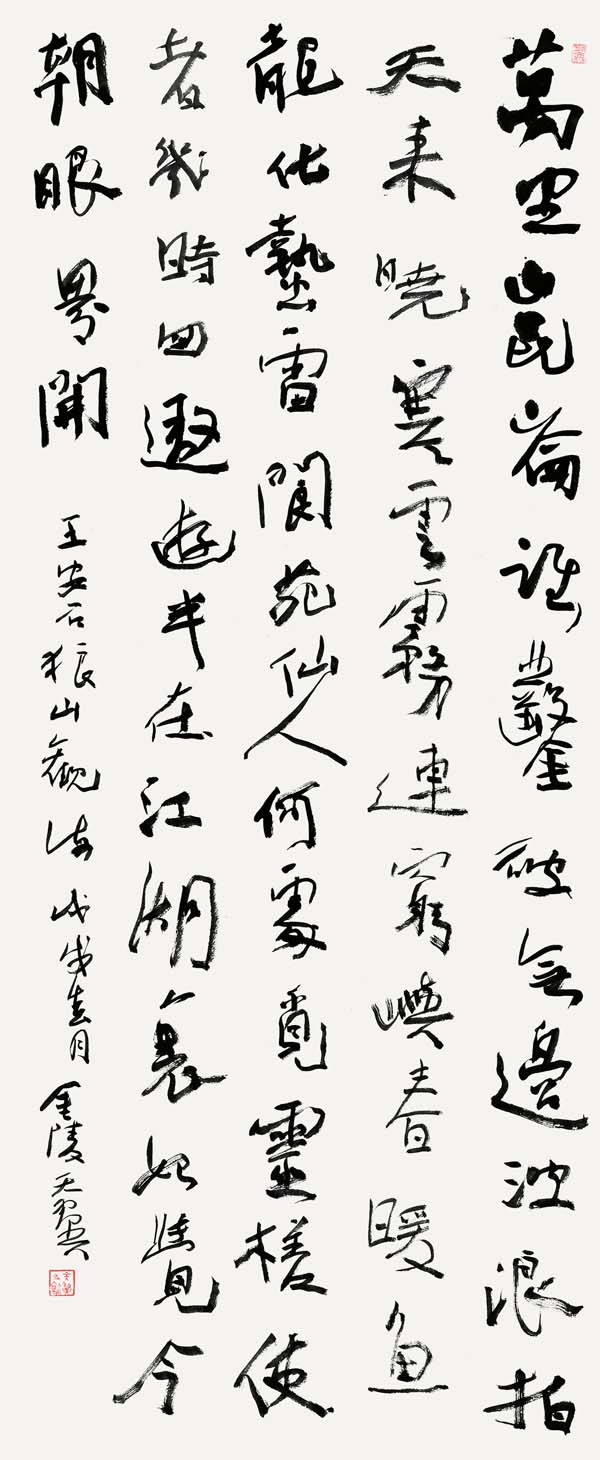 萬里崑崙誰鑿破無邊波浪拍
天來曉寒雲霧連窮嶼春暖魚
龍化蟄雷閬苑仙人何處覓靈槎使
者幾時回遨遊半在江湖裏始覺今
朝眼界開 王安石狼山觀海 戊戌春月 金陵天翼